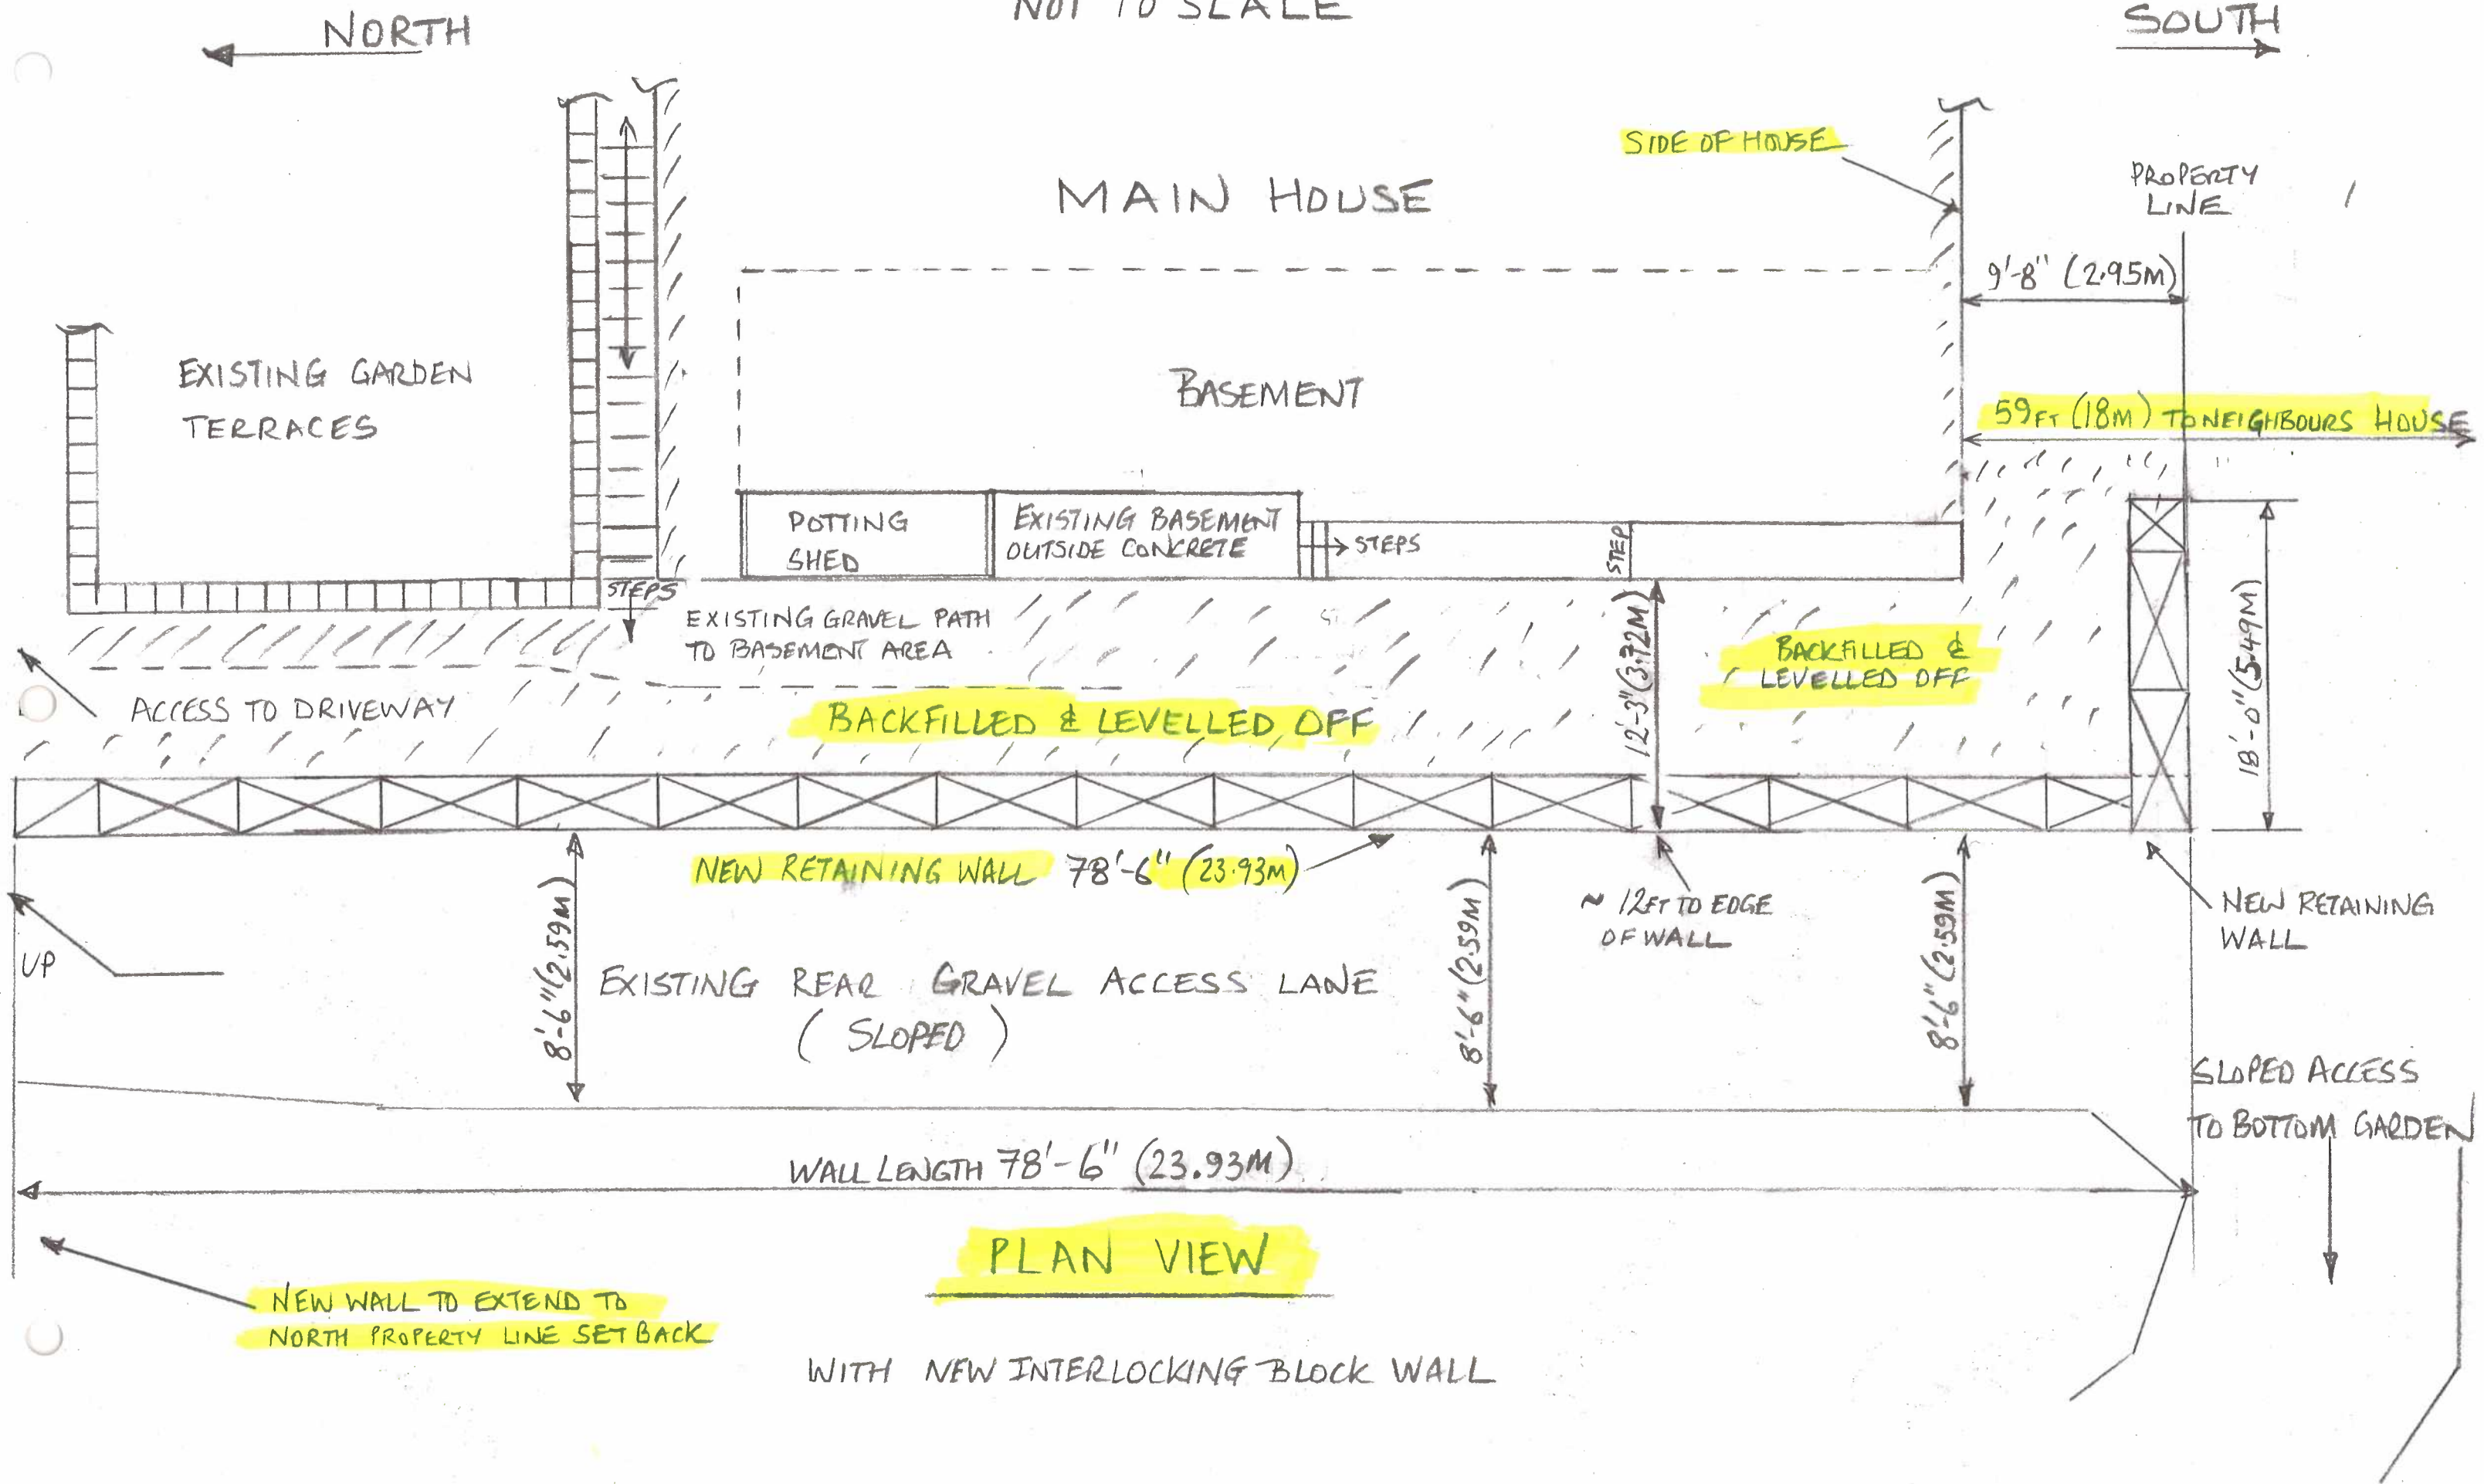 NOT TO SCALE
NORTH
SOUTH
SIDE OF HOUSE
MAIN HOUSE
PROPERTY
LINE
9'-8" (2.95M)
EXISTING GARDEN
TERRACES
BASEMENT
59FT (18M) TO NEIGHBOURS HOUSE
POTTING
SHED
EXISTING BASEMENT
OUTSIDE CONCRETE
STEPS
STEP
STEPS
EXISTING GRAVEL PATH
TO BASEMENT AREA
12'-3" (3.72M)
BACKFILLED &
LEVELLED OFF
18'-0" (5.49M)
ACCESS TO DRIVEWAY
BACKFILLED & LEVELLED OFF
NEW RETAINING WALL 78'-6" (23.93M)
8'-6" (2.59M)
8'-6" (2.59M)
~ 12FT TO EDGE
OF WALL
8'-6" (2.59M)
NEW RETAINING
WALL
UP
EXISTING REAR GRAVEL ACCESS LANE
(SLOPED)
SLOPED ACCESS
TO BOTTOM GARDEN
WALL LENGTH 78'-6" (23.93M)
PLAN VIEW
NEW WALL TO EXTEND TO
NORTH PROPERTY LINE SET BACK
WITH NEW INTERLOCKING BLOCK WALL